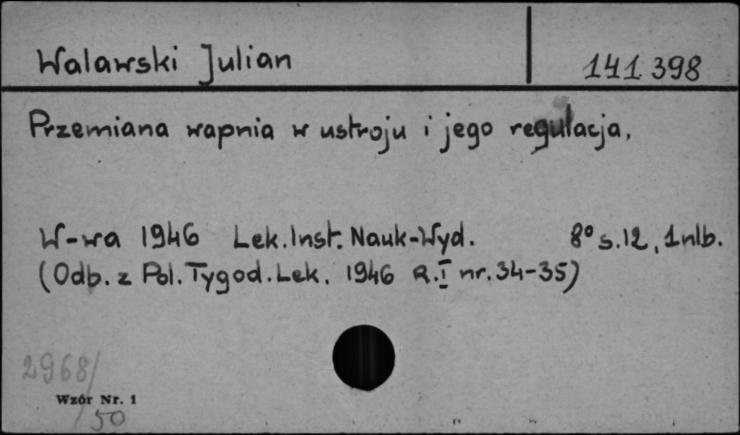 Walawski Julian 141398
Przemiana wapnia w ustroju i jego regulacja,
W-wa 1946 Lek.Inst. Nauk-Wyd. 8° s.12, 1nlb.
(Odb. z Pol. Tygod. Lek. 1946 R.I nr. 34-35)
2968/
Wzór Nr. 1
50